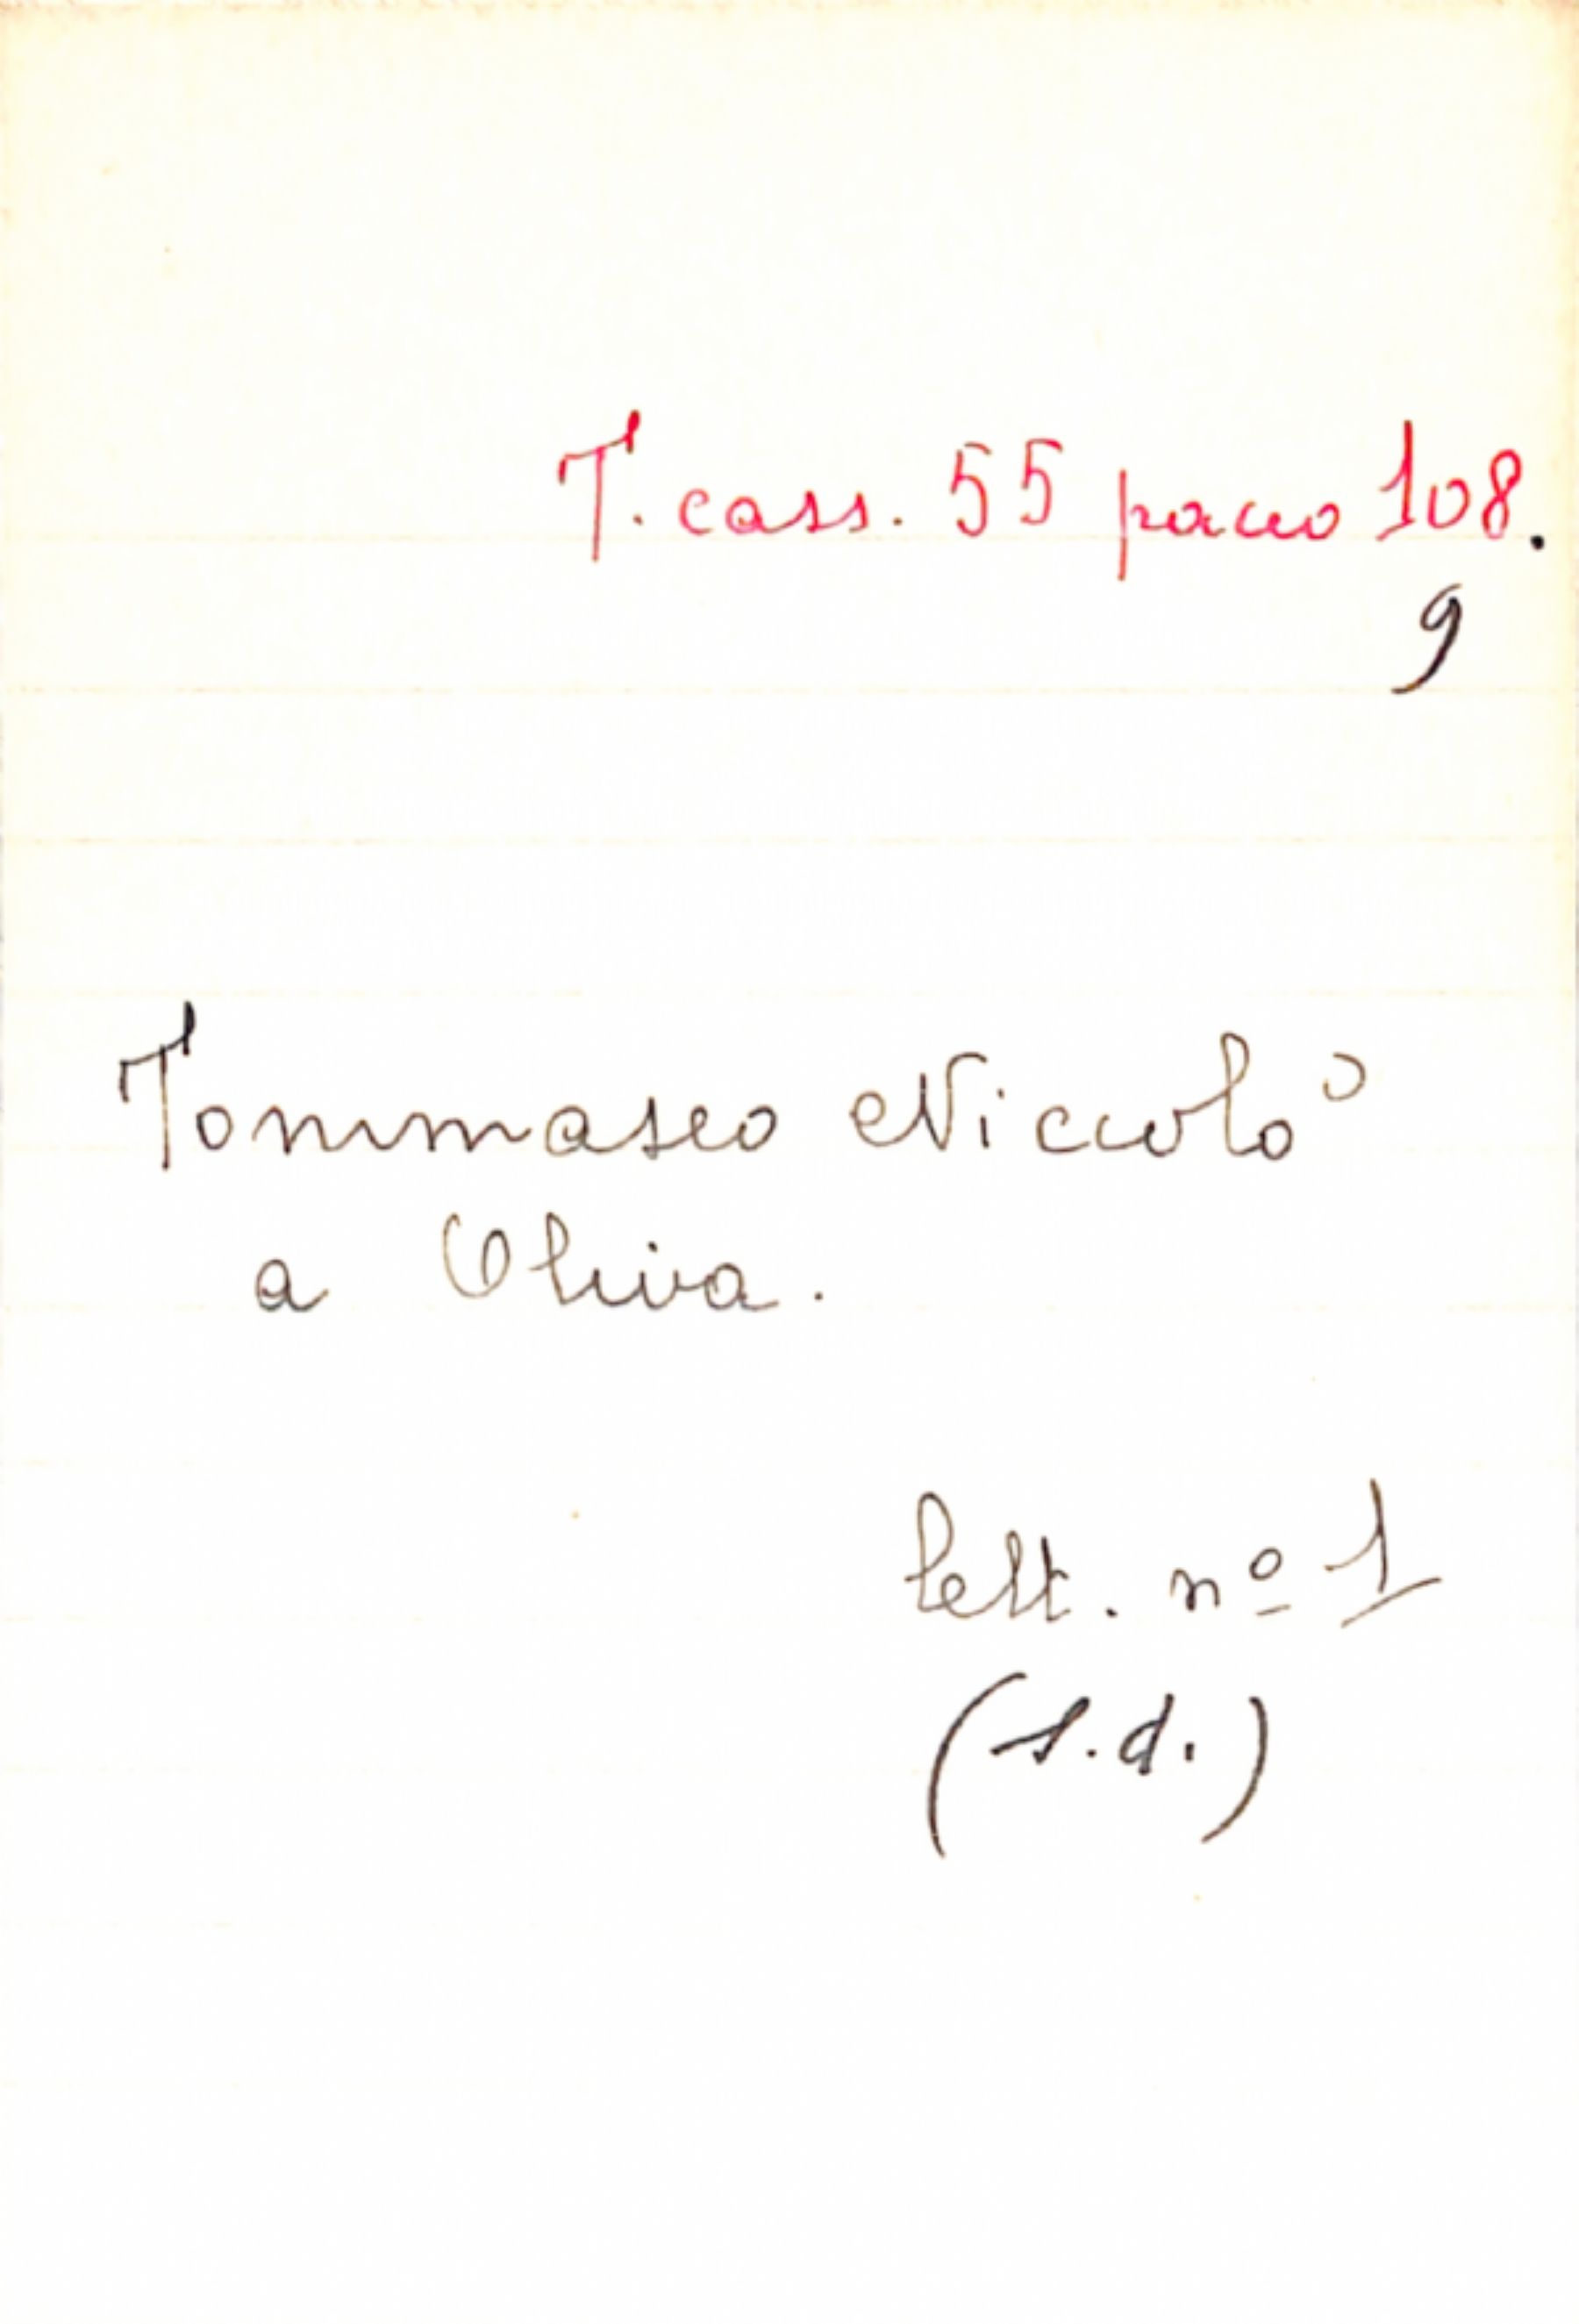 T. cass. 55 pacco 108.
9
Tommaseo Niccolò
a Oliva.
lett. nº 1
(s.d.)